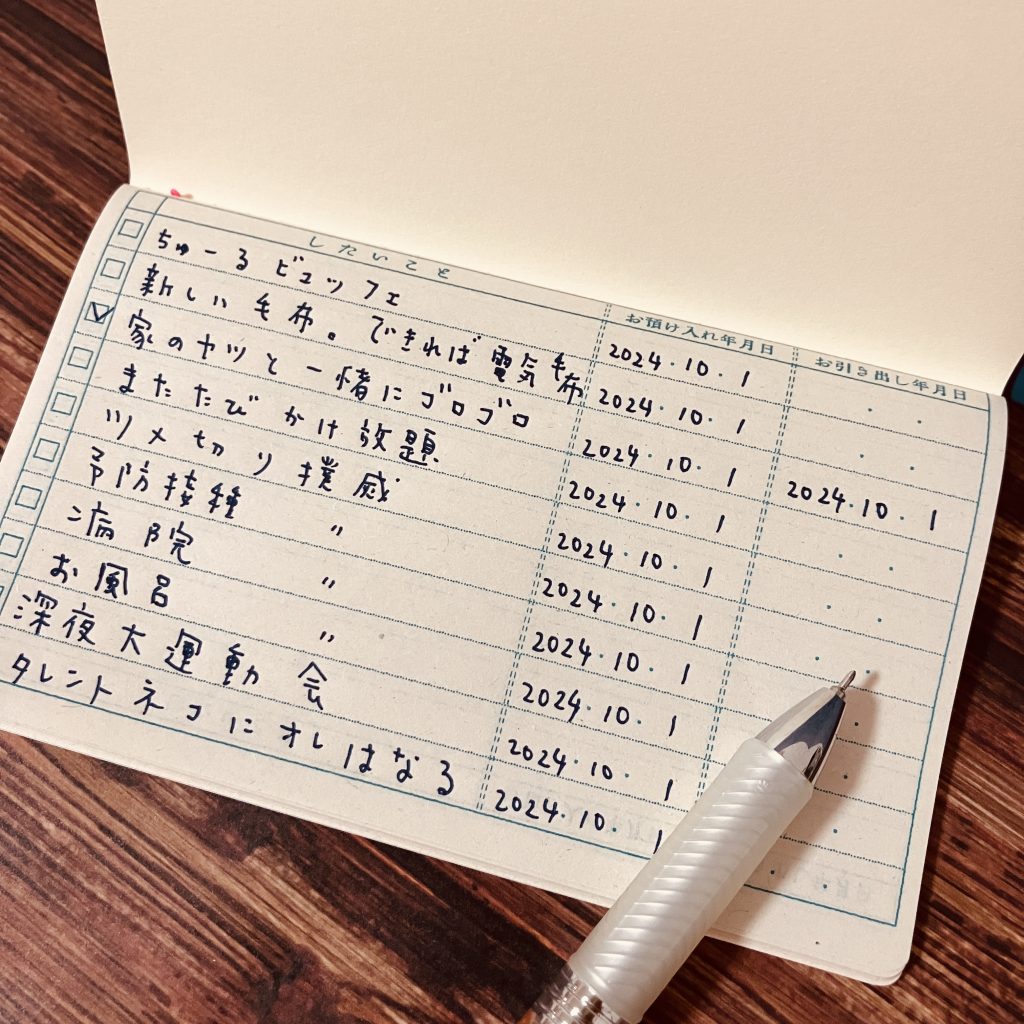 したいこと お預け入れ年月日 お引き出し年月日
ちゅーるビュッフェ 2024・10・1
新しい毛布。できれば電気毛布 2024・10・1
家のヤツと一緒にゴロゴロ 2024・10・1 2024・10・1
またたびかけ放題 2024・10・1
ツメ切り撲滅 2024・10・1
予防接種 〃 2024・10・1
病院 〃 2024・10・1
お風呂 〃 2024・10・1
深夜大運動会 2024・10・1
タレントネコにオレはなる 2024・10・1